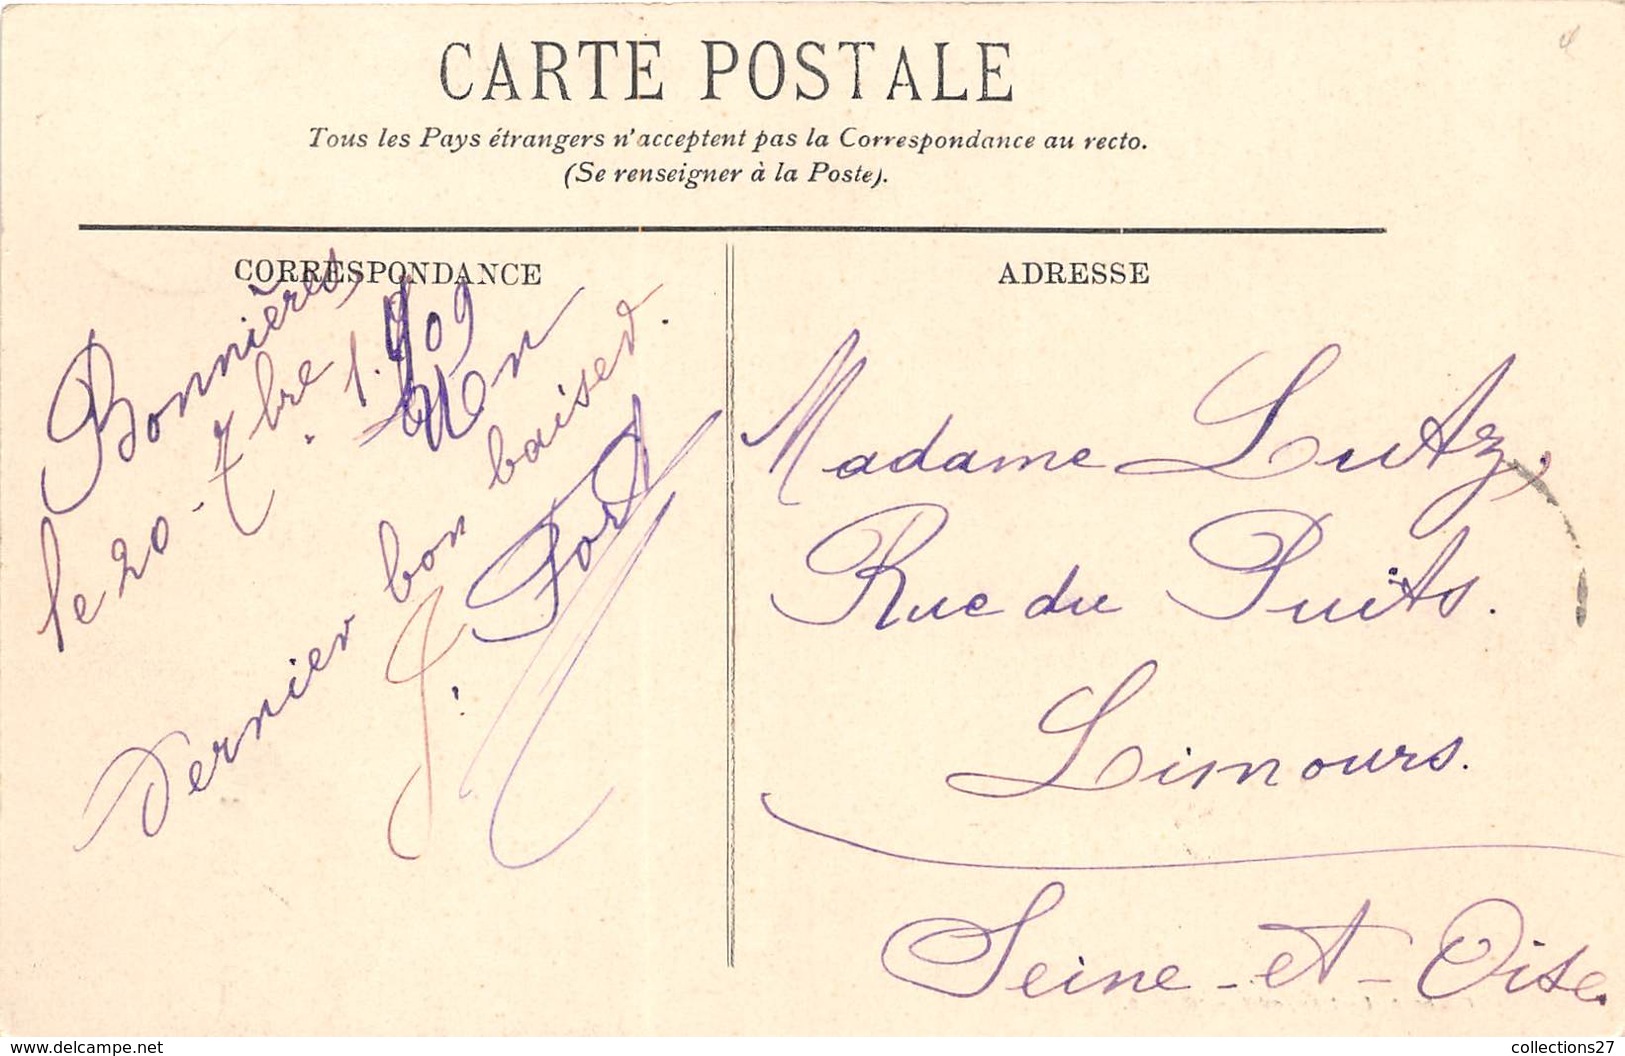 CARTE POSTALE
Tous les Pays étrangers n'acceptent pas la Correspondance au recto.
(Se renseigner à la Poste).
CORRESPONDANCE
Bonnières
le 20 - 7bre. 1.909
Un
Dernier bon baiser.
J.
ADRESSE
Madame Lutz,
Rue du Puits.
Limours.
Seine-et-Oise.
www.delcampe.net
collections27